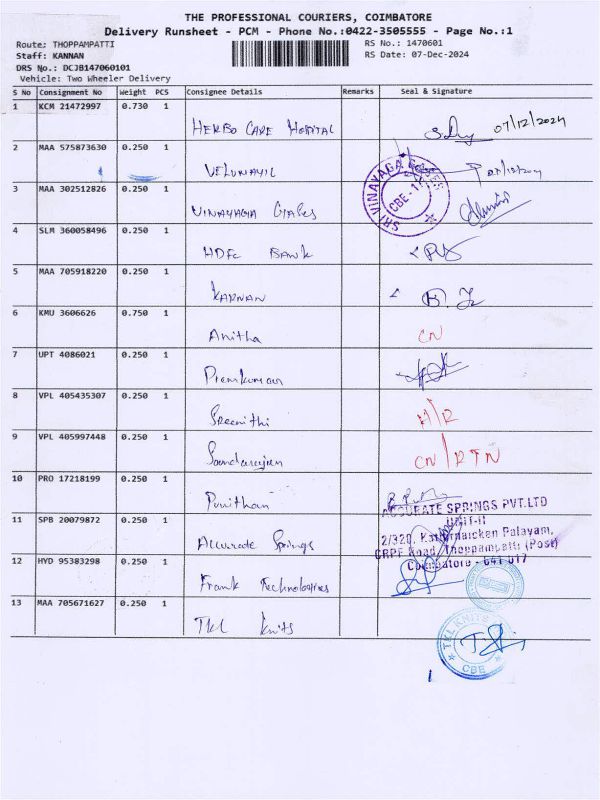 THE PROFESSIONAL COURIERS, COIMBATORE
Delivery Runsheet - PCM - Phone No.:0422-3505555 - Page No.:1
Route: THOPPAMPATTI RS No.: 1470601
Staff: KANNAN RS Date: 07-Dec-2024
DRS No.: DCJB147060101
Vehicle: Two Wheeler Delivery
S No Consignment No Weight PCS Consignee Details Remarks Seal & Signature
1 KCM 21472997 0.730 1
HERBO CARE HOSPITAL 07/12/2024
2 MAA 575873630 0.250 1
VELUNAYIL
SRI VINAYAGA CBE-17
3 MAA 302512826 0.250 1
VINAYAGA
4 SLM 360058496 0.250 1
HDFC BANK
5 MAA 705918220 0.250 1
KARNAN
6 KMU 3606626 0.750 1
Anitha CN
7 UPT 4086021 0.250 1
Premkumar
8 VPL 405435307 0.250 1
Sreenithi H/R
9 VPL 405997448 0.250 1
Soundarajan CN/RTN
10 PRO 17218199 0.250 1
Punithan
ACCURATE SPRINGS PVT.LTD
UNIT-II
11 SPB 20079872 0.250 1
2/320, Kathirnaicken Palayam,
Accurate Springs
CRPF Road, Thoppampatti (Post)
12 HYD 95383298 0.250 1
Coimbatore - 641 017
Frank Technologies
13 MAA 705671627 0.250 1
TKL Knits
TKL KNITS
CBE